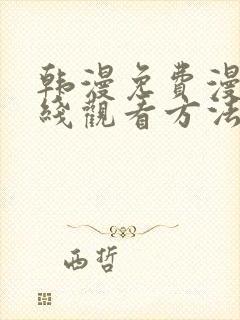 韩漫免費漫
綫觀看方法
西哲